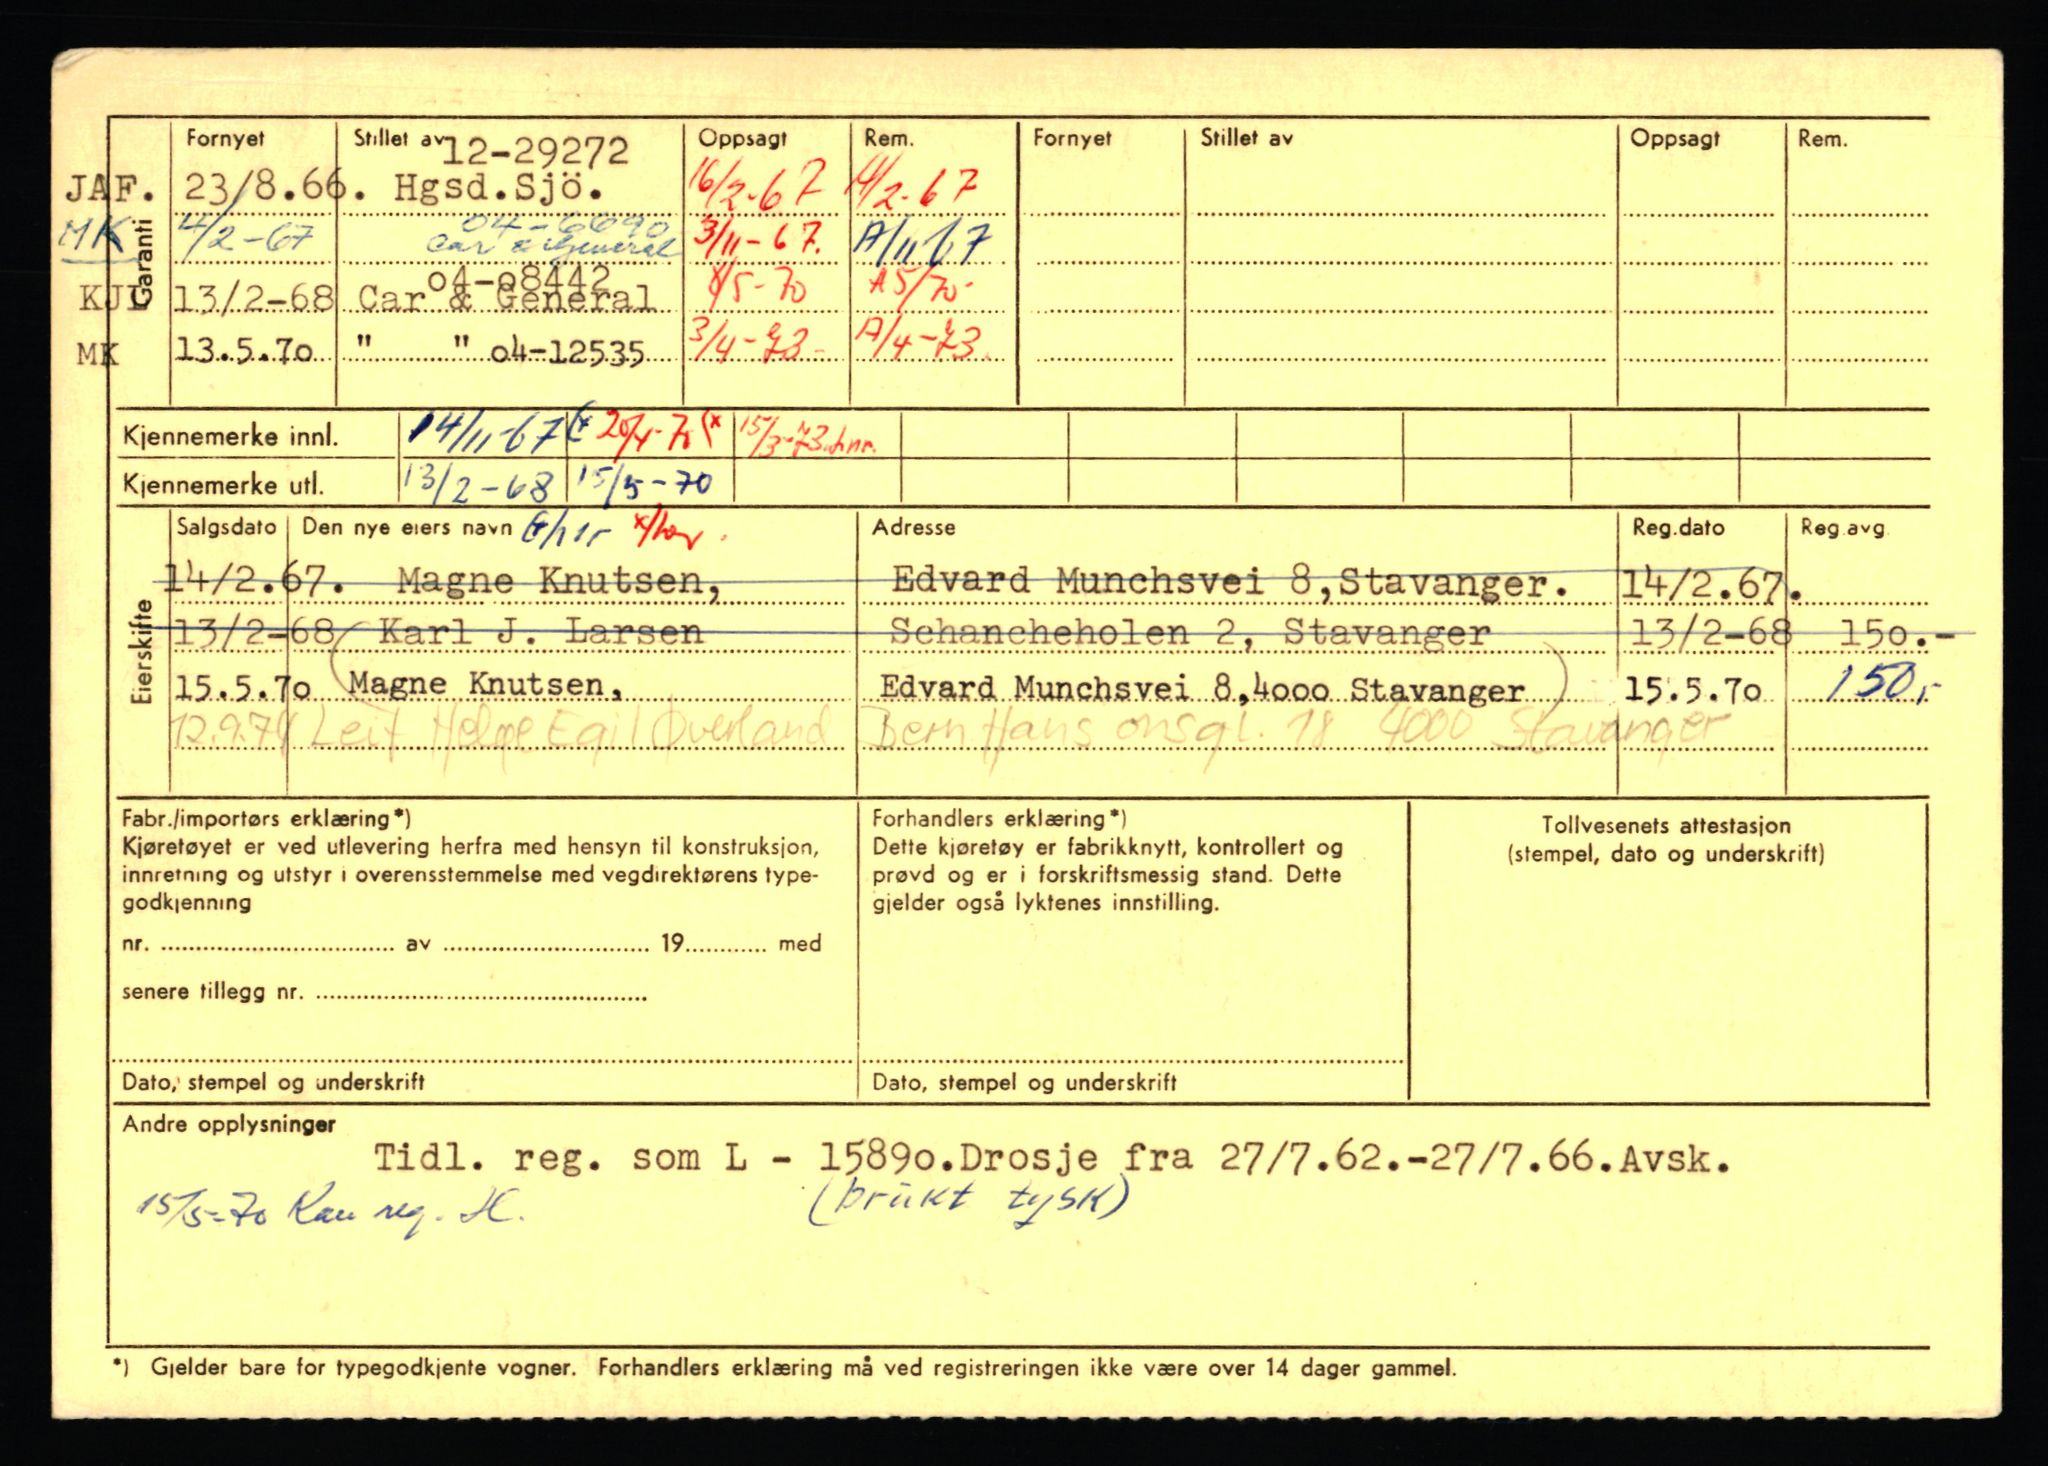 Fornyet Stillet av 12-29272 Oppsagt Rem. Fornyet Stillet av Oppsagt Rem.
JAF. 23/8.66. Hgsd.Sjö. 16/2-67 14/2-67
04-6690
MK 4/2-67 Car & General 3/11-67. A/11-67
Garanti
o4-o8442
KJL 13/2-68 Car & General /5-70 A5/70-
MK 13.5.7o " " o4-12535 3/4-73- A/4-73.
Kjennemerke innl. 14/11-67 20/4-70 15/3-73
Kjennemerke utl. 13/2-68 15/5-70
Salgsdato Den nye eiers navn Adresse Reg.dato Reg.avg.
Eierskifte
14/2.67. Magne Knutsen, Edvard Munchsvei 8,Stavanger. 14/2.67.
13/2-68 Karl J. Larsen Schancheholen 2, Stavanger 13/2-68 15o.-
15.5.7o Magne Knutsen, Edvard Munchsvei 8,4ooo Stavanger 15.5.7o 150,-
12.9.74 Leif Helge Egil Øverland Bern Hans onsgl. 18 4000 Stavanger
Fabr./importørs erklæring*)
Kjøretøyet er ved utlevering herfra med hensyn til konstruksjon,
innretning og utstyr i overensstemmelse med vegdirektørens type-
godkjenning
nr. .......... av .......... 19.......... med
senere tillegg nr. ..........
Dato, stempel og underskrift
Forhandlers erklæring*)
Dette kjøretøy er fabrikknytt, kontrollert og
prøvd og er i forskriftsmessig stand. Dette
gjelder også lyktenes innstilling.
Dato, stempel og underskrift
Tollvesenets attestasjon
(stempel, dato og underskrift)
Andre opplysninger
Tidl. reg. som L - 1589o.Drosje fra 27/7.62.-27/7.66.Avsk.
(brukt tysk)
15/5-70 Kan reg. H.
*) Gjelder bare for typegodkjente vogner. Forhandlers erklæring må ved registreringen ikke være over 14 dager gammel.